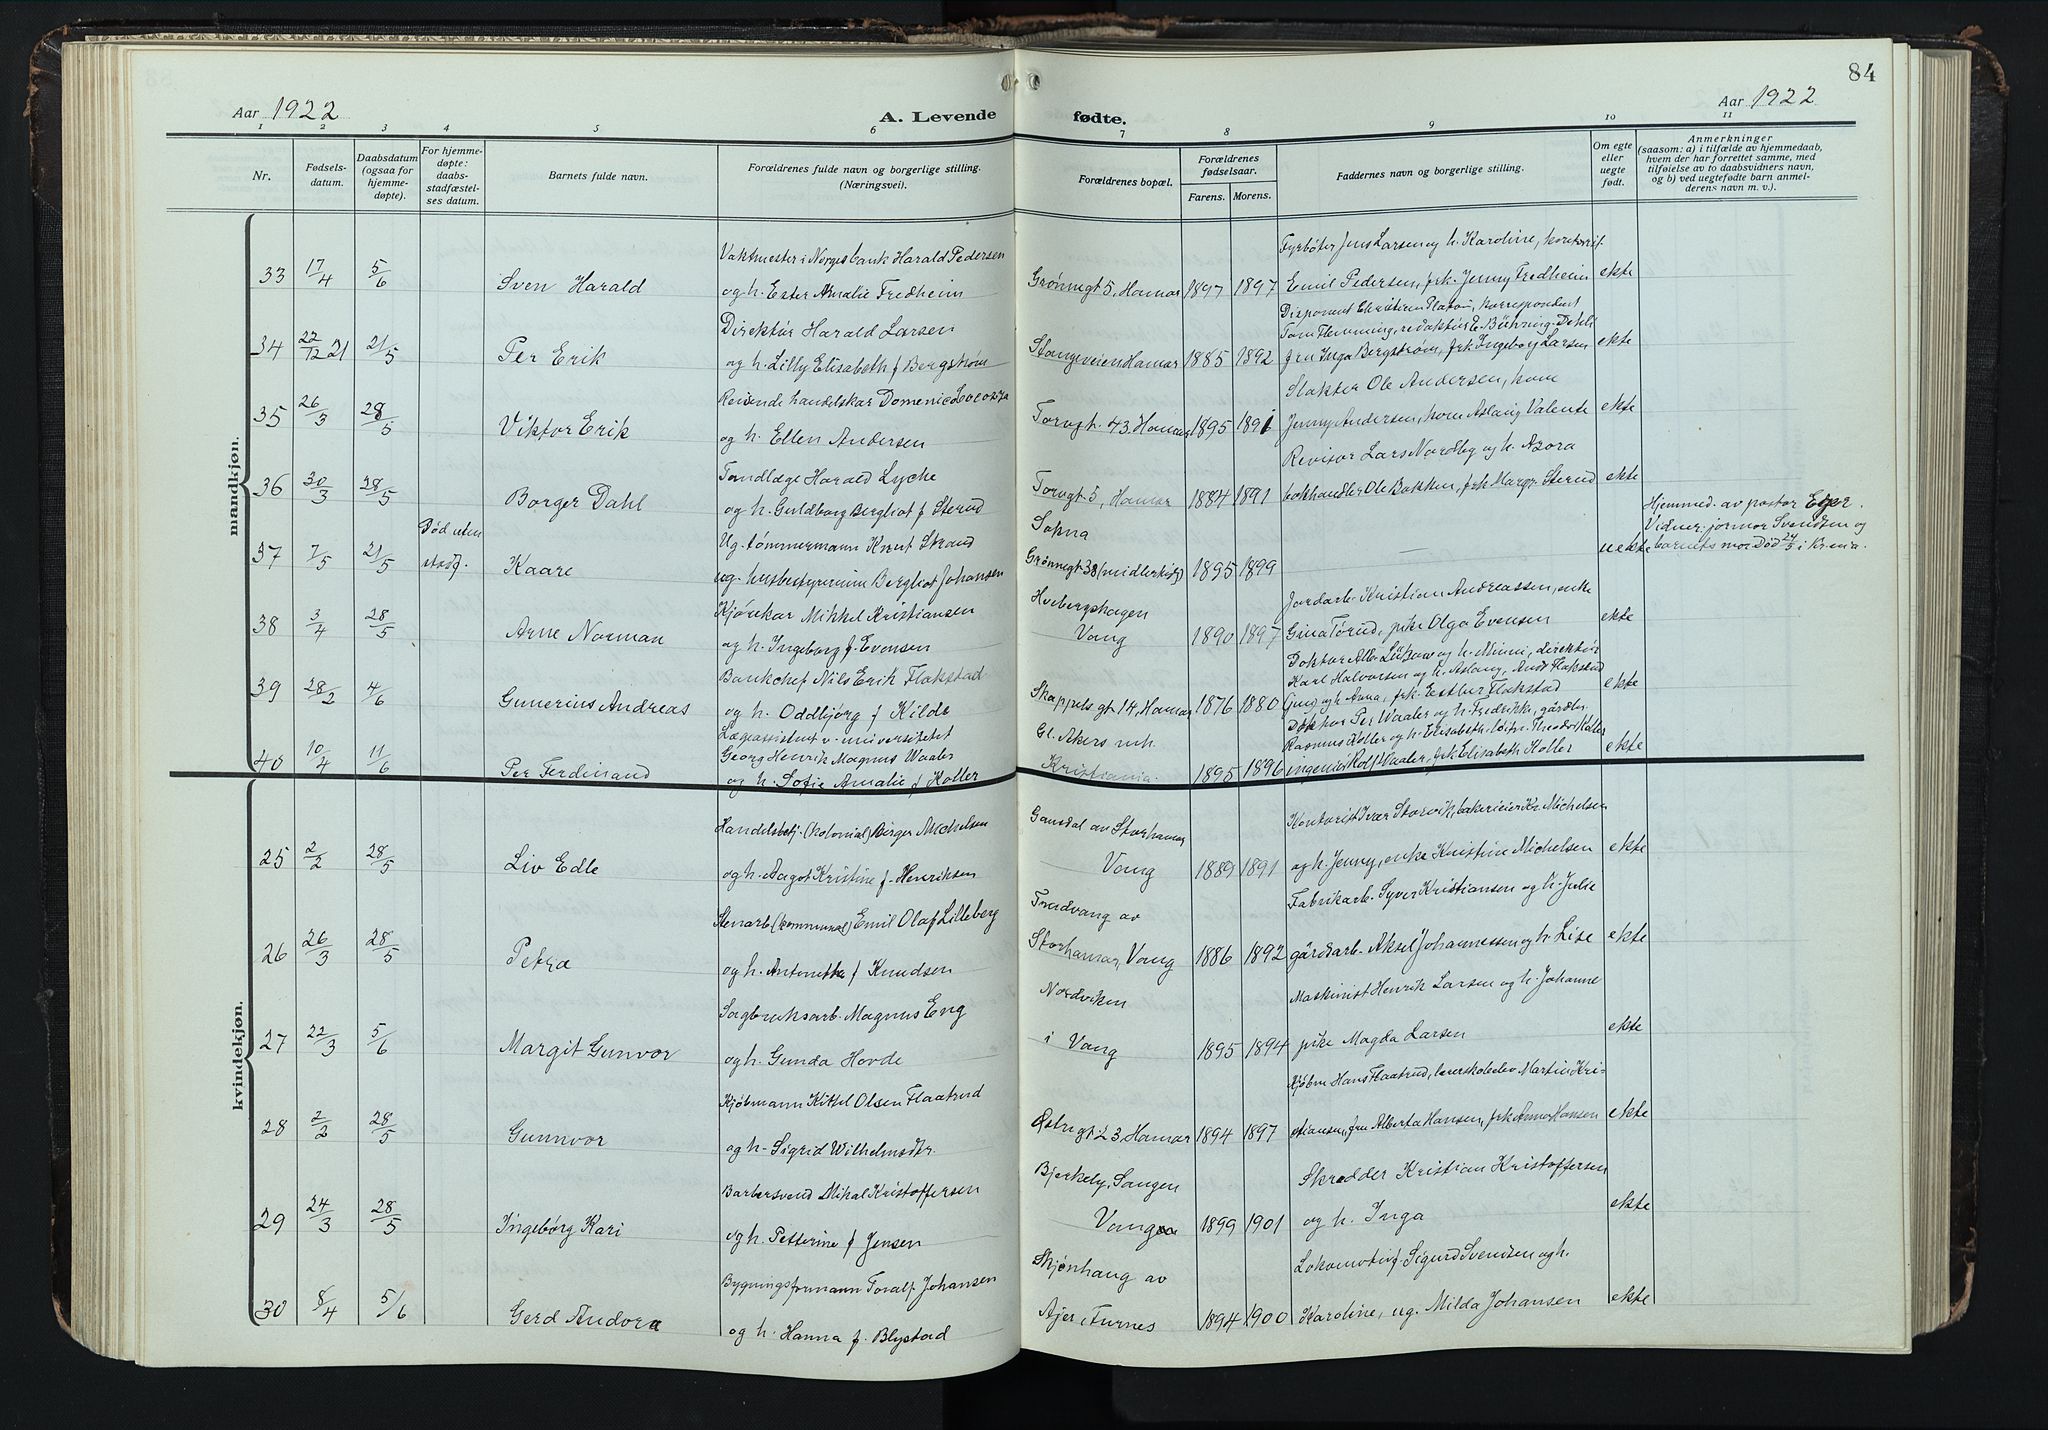 84
Aar 1922
A. Levende fødte.
Aar 1922
1 2 3 4 5 6 7 8 9 10 11
Nr.
Fødsels-
datum.
Daabsdatum
(ogsaa for
hjemme-
døpte).
For hjemme-
døpte:
daabs-
stadfæstel-
ses datum.
Barnets fulde navn.
Forældrenes fulde navn og borgerlige stilling.
(Næringsvei).
Forældrenes bopæl.
Forældrenes
fødselsaar.
Farens. Morens.
Faddernes navn og borgerlige stilling.
Om egte
eller
uegte
født.
Anmerkninger
(saasom: a) i tilfælde av hjemmedaab,
hvem der har forrettet samme, med
tilføielse av to daabsvidners navn,
og b) ved uegtefødte barn anmel-
derens navn m. v.).
mandkjøn.
33 17/4 5/6 Sven Harald
Vaktmester i Norges bank Harald Pedersen
og h. Ester Amalie Fredheim
Grønnegt 5, Hamar 1897 1897
Fyrbøter Jens Larsen og h. Karoline, kontorist
Emil Pedersen, frk. Jenny Fredheim
ekte
34 22/12 21 21/5 Per Erik
Direktør Harald Larsen
og h. Lilly Elisabeth f Bergstrøm
Stangeveien Hamar 1885 1892
Disponent Christian Platou, korrespondent
Tom Flemming, redaktør E. Bühring-Dehli
fru Inga Bergstrøm, frk Ingeborg Larsen
ekte
35 26/3 28/5 Viktor Erik
Reisende handelskar Domenic
og h. Ellen Andersen
Torvgt. 43. Hamar 1895 1891
Slakter Ole Andersen, kone
Jenny Andersen, kone Aslaug Valente
ekte
36 30/3 28/5 Borger Dahl
Tandlæge Harald Lyche
og h. Guldborg Bergliot f Sterud
Torvgt 5, Hamar 1884 1891
Revisor Lars Nordby og h. Azora
bokhandler Ole Bakken, frk Margr. Sterud
ekte
37 7/5 21/5 Død uten
stadf.
Kaare
Ug. tømmermann Knut Strand
ug. husbestyrerinne Bergliot Johansen
Sokna
Grønnegt 38 (midlertidig) 1895 1899
—
uekte
Hjemmed. av pastor Eger.
Vidner: jormor Svendsen og
barnets mor Død 24/5 i Kr.nia.
38 3/4 28/5 Arne Norman
Kjørekar Mikkel Kristiansen
og h. Ingeborg f. Evensen
Hvebergshagen
Vang 1890 1897
Jordarb. Kristian Andreassen, enke
Gina Torud, pike Olga Evensen
ekte
39 28/2 4/6 Gunerius Andreas
Bankchef Nils Erik Flakstad
og h. Oddbjørg f Kilde
Skappels gt 14, Hamar 1876 1880
Doktor Alb. Lützow og h. Mimi, direktør
Karl Halvorsen og h. Aslaug, Andr Flakstad
(jun) og h. Anna, frk. Esther Flakstad
ekte
40 10/4 11/6 Per Ferdinand
Lægeassistent v. universitetet
Georg Henrik Magnus Waaler
og h. Sofie Amalie f Koller
Gl. Akers mh.
Kristiania. 1895 1896
Doktor Per Waaler og h. Fredrikke, gårdbr.
Rasmus Koller og h. Elisabeth, løitn. Theodor Koller
ingeniør Rolf Waaler, frk Elisabeth Koller
ekte
kvindekjøn.
25 2/2 28/5 Liv Edle
Handelsbetj. (kolonial) Birger Michelsen
og h. Aagot Kristine f. Henriksen
Gansdal av Storhamar
Vang 1889 1891
Kontorist Ivær Storvik, bakerieier Kr. Michelsen
og h. Jenny, enke Kristine Michelsen
ekte
26 26/3 28/5 Petra
Stenarb. (kommunal) Emil Olaf Lilleberg
og h. Antonette f Knudsen
Trudvang av
Storhamar, Vang 1886 1892
Fabrikarb. Syver Kristiansen og h. Julie
gårdarb. Aksel Johannessen og h. Lise
ekte
27 22/3 5/6 Margit Gunvor
Sagbruksarb. Magnus Eng
og h. Gunda Hovde
Nordviken
i Vang 1895 1894
Maskinist Henrik Larsen og h. Johanne
pike Magda Larsen
ekte
28 2/2 28/5 Gunnvor
Kjøbmann Kittel Olsen Flaatrud
og h. Sigrid Wilhelmsdtr.
Østregt 23, Hamar 1894 1897
Kjøbm Hans Flaatrud, lærerskoleelev Martin Kri-
stiansen, fru Alberta Hansen, frk Anna Hansen
ekte
29 24/3 28/5 Ingebørg Kari
Barbersvend Mikal Kristoffersen
og h. Petterine f Jensen
Bjerkely, Sangen
Vang 1899 1901
Skredder Kristian Kristoffersen
og h. Inga
ekte
30 8/4 5/6 Gerd Andora
Bygningsformann Toralf Johansen
og h. Hanna f. Blystad
Skjønhaug av
Ajer, Furnes 1894 1900
Lokomotivf. Sigurd Svendsen og h.
Karoline, ug. Milda Johansen
ekte